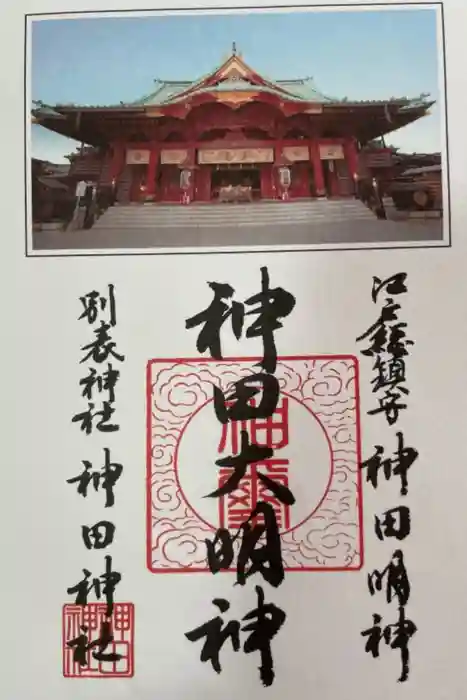 江戸総鎮守 神田明神
神田大明神
別表神社 神田神社